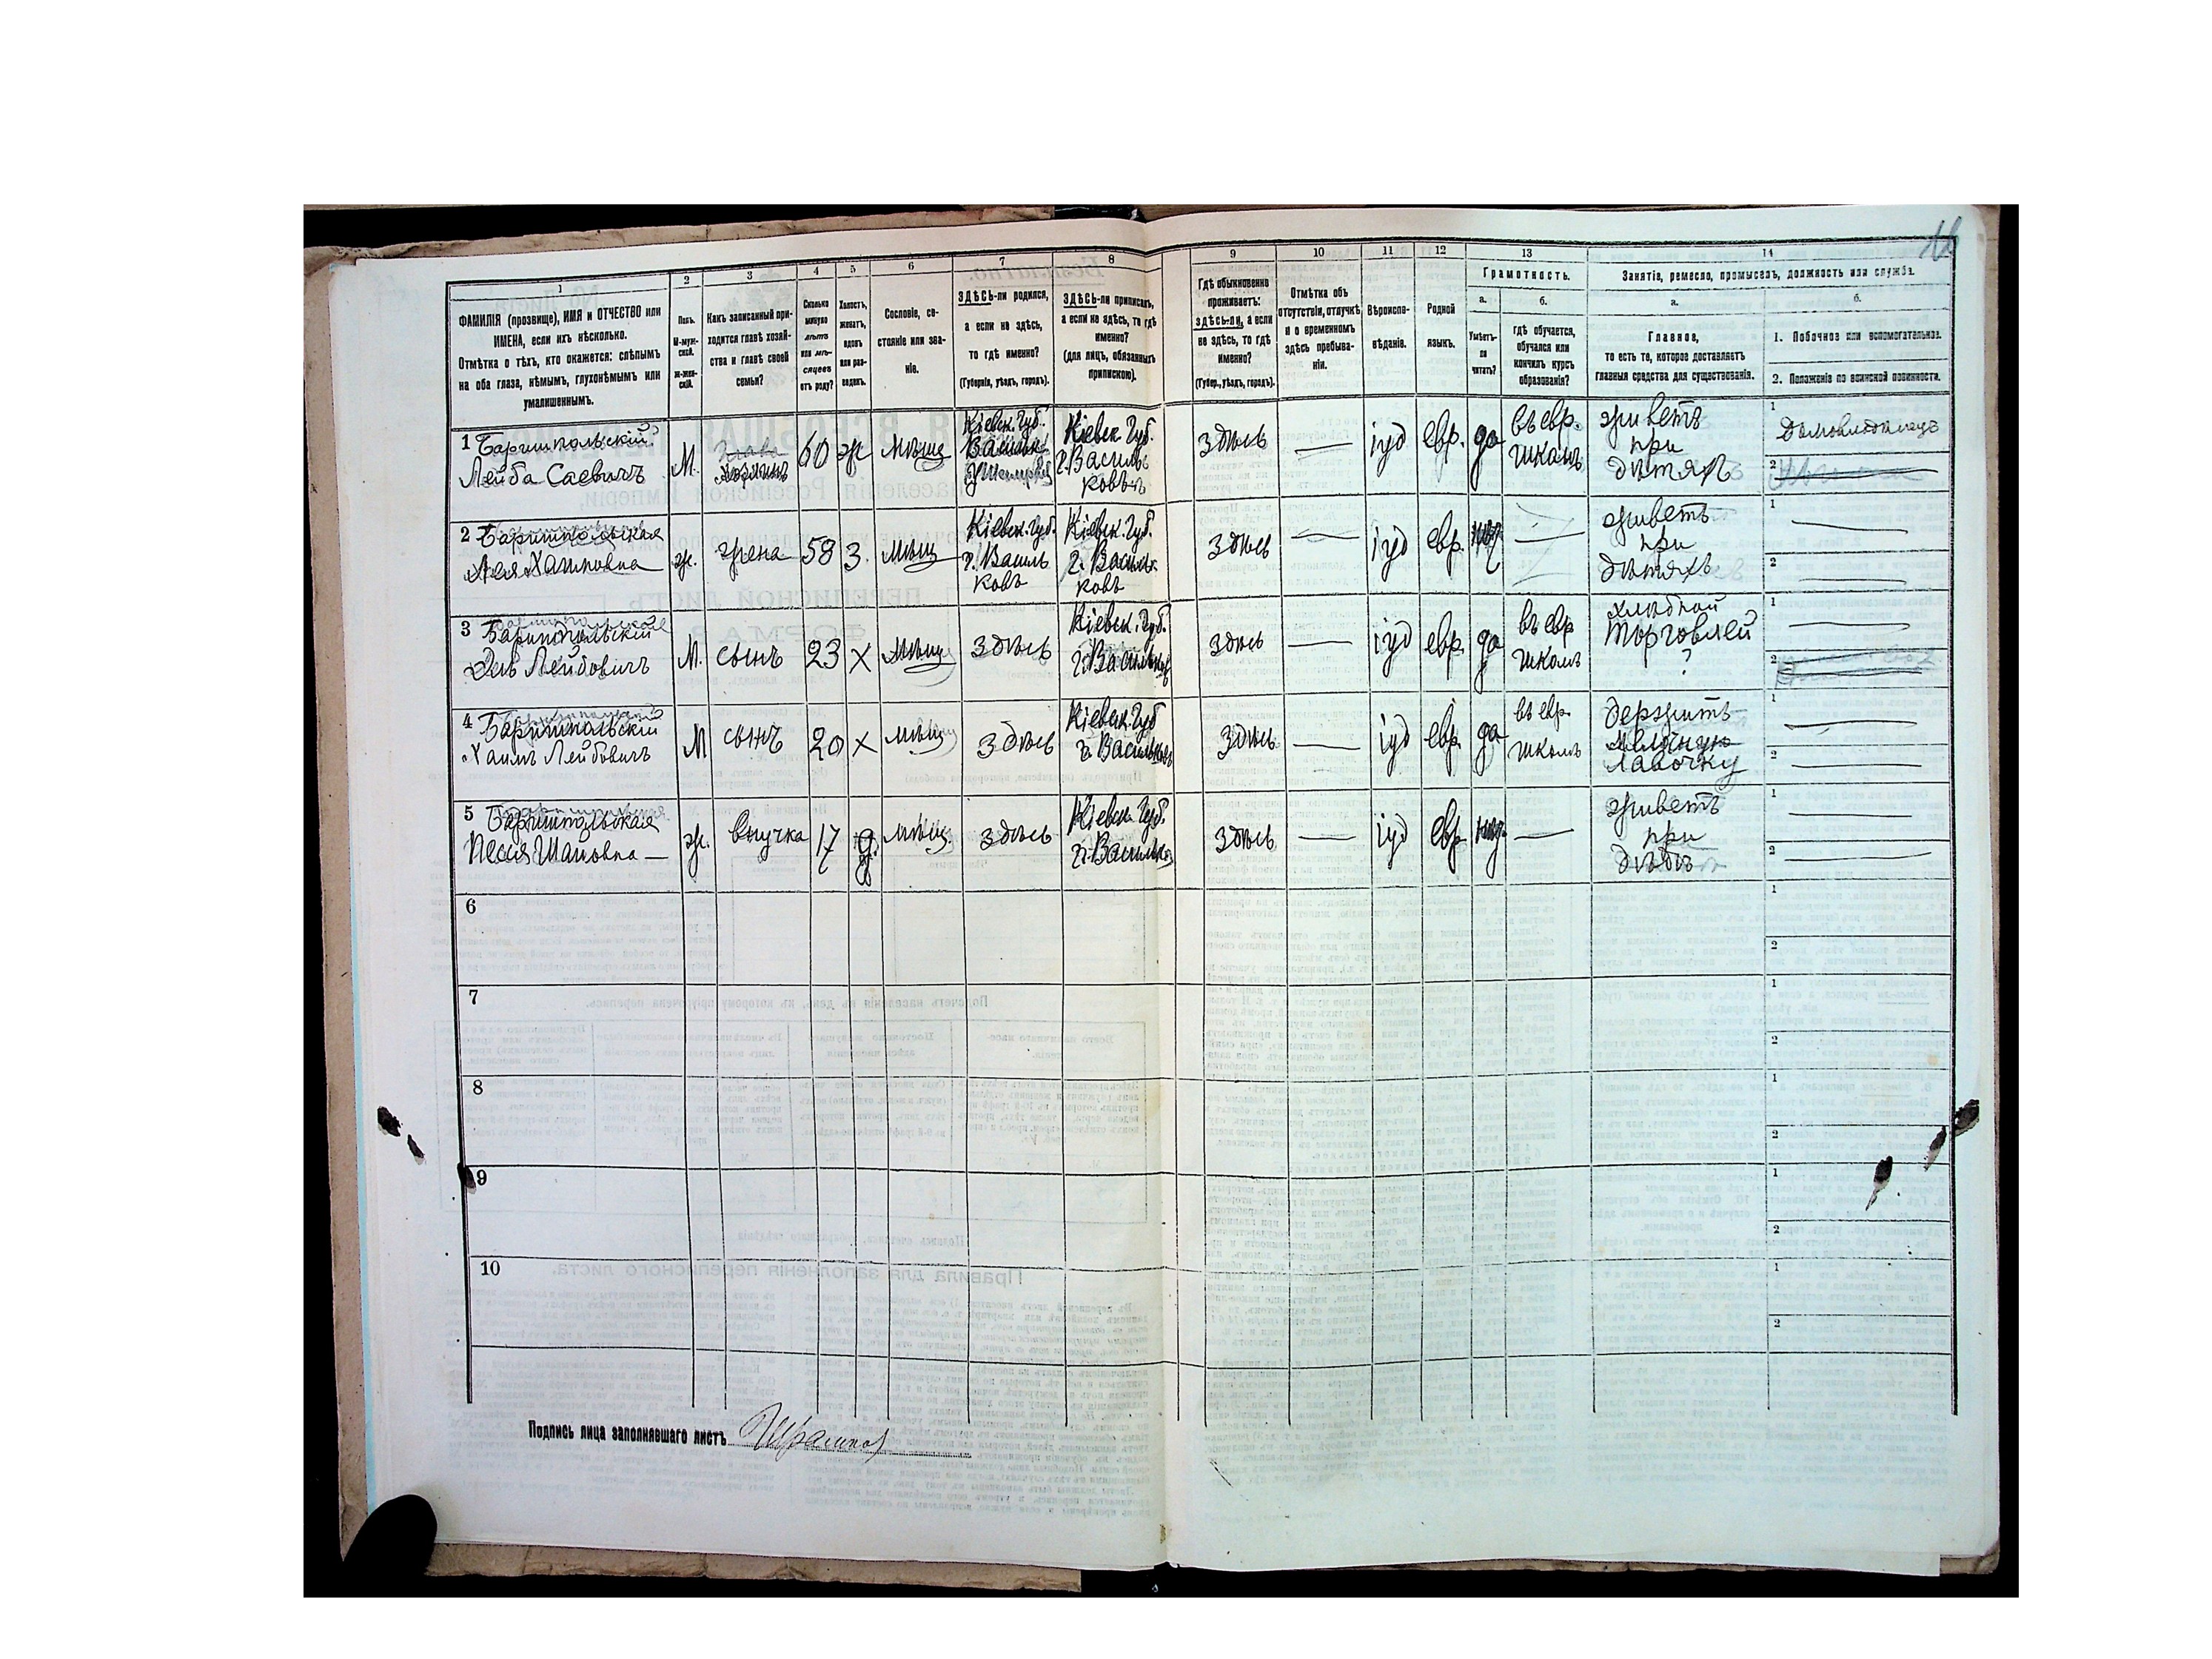 1 2 3 4 5 6 7 8 9 10 11 12 13 14
ФАМИЛІЯ (прозвище), ИМЯ и ОТЧЕСТВО или
ИМЕНА, если ихъ нѣсколько.
Отмѣтка о тѣхъ, кто окажется: слѣпымъ
на оба глаза, нѣмымъ, глухонѣмымъ или
умалишеннымъ.
Полъ.
М-муж-
ской.
Ж-жен-
скій.
Какъ записанный при-
ходится главѣ хозяй-
ства и главѣ своей
семьи?
Сколько
минуло
лѣтъ
или мѣ-
сяцевъ
отъ роду?
Холостъ,
женатъ,
вдовъ
или раз-
веденъ.
Сословіе, со-
стояніе или зва-
ніе.
ЗДѢСЬ-ли родился,
а если не здѣсь,
то гдѣ именно?
(Губернія, уѣздъ, городъ).
ЗДѢСЬ-ли приписанъ,
а если не здѣсь, то гдѣ
именно?
(для лицъ, обязанныхъ
припискою).
Гдѣ обыкновенно
проживаетъ:
здѣсь-ли, а если
не здѣсь, то гдѣ
именно?
(Губер., уѣздъ, городъ).
Отмѣтка объ
отсутствіи, отлучкѣ
и о временномъ
здѣсь пребыва-
ніи.
Вѣроиспо-
вѣданіе.
Родной
языкъ.
Грамотность.
а.
Умѣетъ-
ли
читать?
б.
гдѣ обучается,
обучался или
кончилъ курсъ
образованія?
Занятіе, ремесло, промыселъ, должность или служба.
а.
Главное,
то есть то, которое доставляетъ
главныя средства для существованія.
б.
1. Побочное или вспомогательное.
2. Положеніе по воинской повинности.
1 Баришпольскій
Лейба Саевичъ
М.
хозяинъ
60
ж
мѣщ
Кіевск. Губ.
Кіевск. Губ.
г. Василь
ковъ
здѣсь
—
іуд
евр.
да
въ евр.
школѣ
живетъ
при
дѣтяхъ
1 Домовладѣлецъ
2
2 Баришпольская
Хаимовна
ж.
жена
58
З.
мѣщ
Кіевск. Губ.
г. Василь
ковъ
Кіевск. Губ.
г. Василь
ковъ
здѣсь
—
іуд
евр.
—
живетъ
при
дѣтяхъ
1 —
2 —
3 Баришпольскій
Лейбовичъ
М.
сынъ
23
Х
мѣщ
здѣсь
Кіевск. Губ.
г. Васильковъ
здѣсь
—
іуд
евр.
да
въ евр
школѣ
хлѣбной
торговлей
?
1 —
2
4 Баришпольскій
Хаимъ Лейбовичъ
М
сынъ
20
Х
мѣщ
здѣсь
Кіевск. Губ
г. Васильковъ
здѣсь
—
іуд
евр.
да
въ евр.
школѣ
держитъ
мелочную
лавочку
1 —
2 —
5 Баришпольская
Песся Шаиовна —
ж.
внучка
17
д.
мѣщ.
здѣсь
Кіевск. Губ.
г. Васильк
здѣсь
—
іуд
евр.
—
живетъ
при
дѣдѣ
1 —
2 —
6
1
2
7
1
2
8
1
2
9
1
2
10
1
2
Подпись лица заполнявшаго листъ